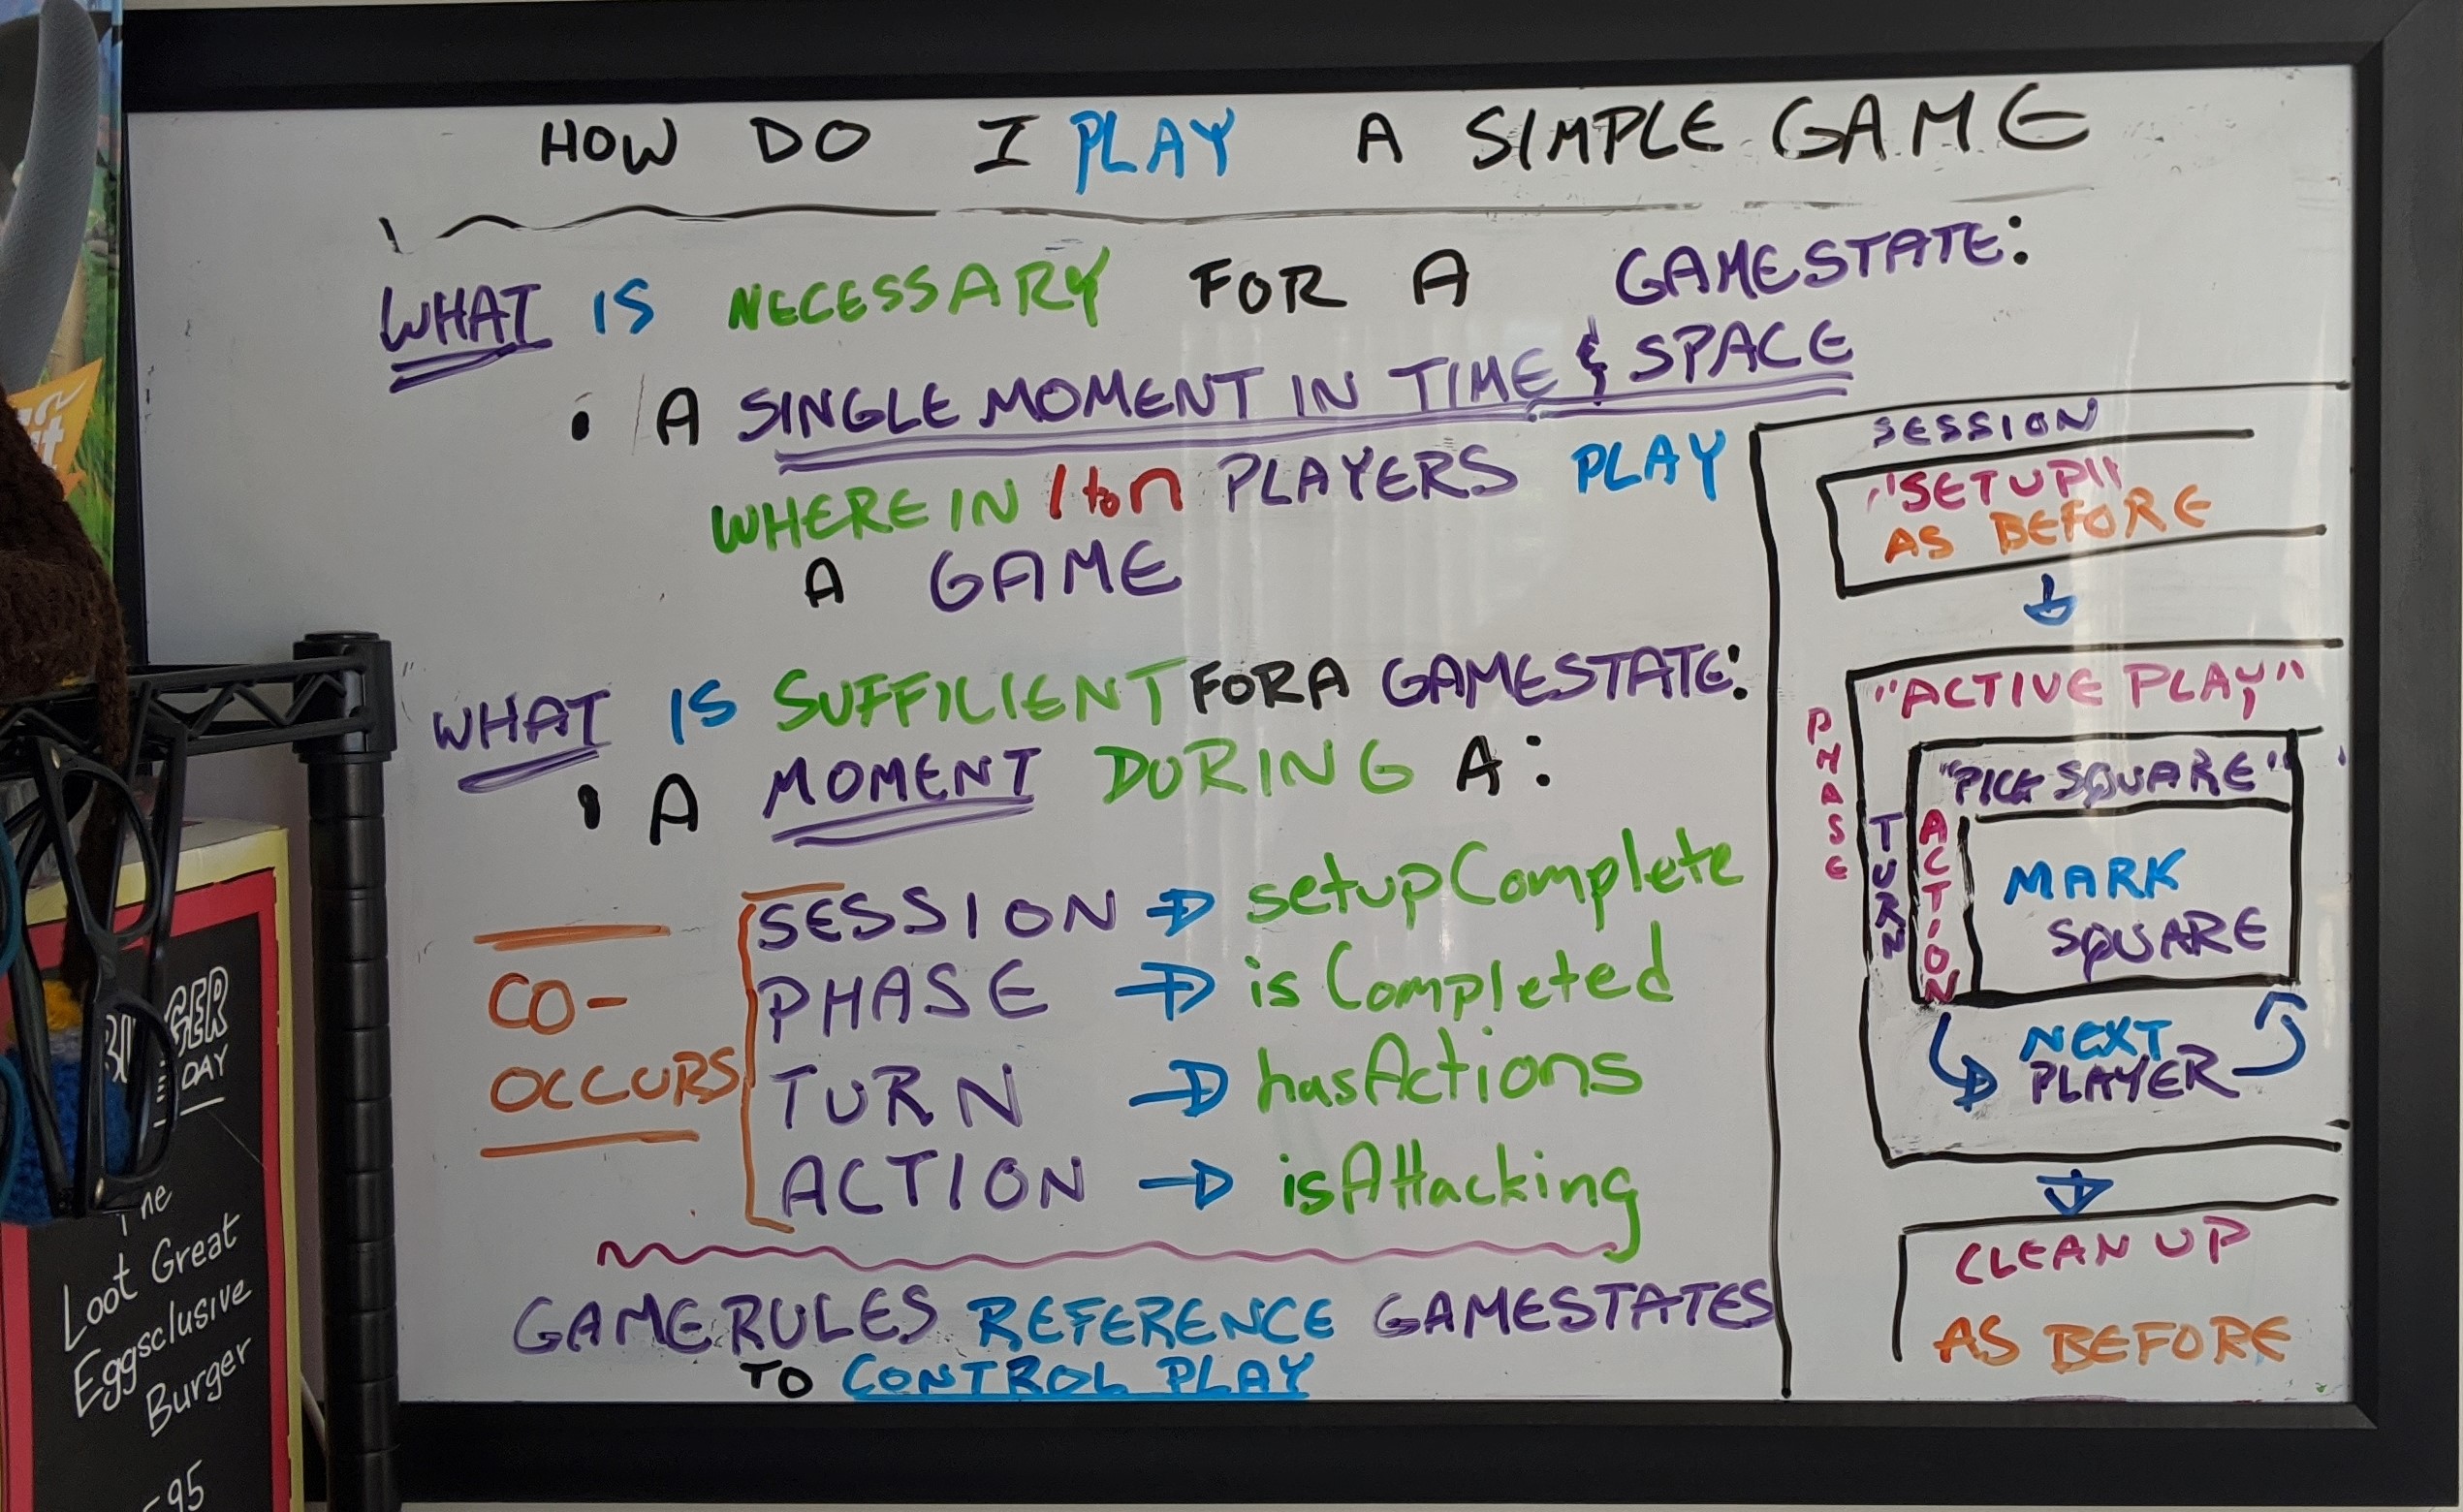 HOW DO I PLAY A SIMPLE GAME
WHAT IS NECESSARY FOR A GAMESTATE:
• A SINGLE MOMENT IN TIME & SPACE
WHEREIN 1 to n PLAYERS PLAY
A GAME
WHAT IS SUFFILIENT FOR A GAMESTATE:
• A MOMENT DURING A:
CO-
OCCURS
SESSION → setupComplete
PHASE → isCompleted
TURN → hasActions
ACTION → isAttacking
GAMERULES REFERENCE GAMESTATES
TO CONTROL PLAY
SESSION
"SETUP"
AS BEFORE
PHASE
"ACTIVE PLAY"
TURN
ACTION
"PICK SQUARE"
MARK
SQUARE
NEXT
PLAYER
CLEAN UP
AS BEFORE
BURGER
DAY
The
Loot Great
Eggsclusive
Burger
95